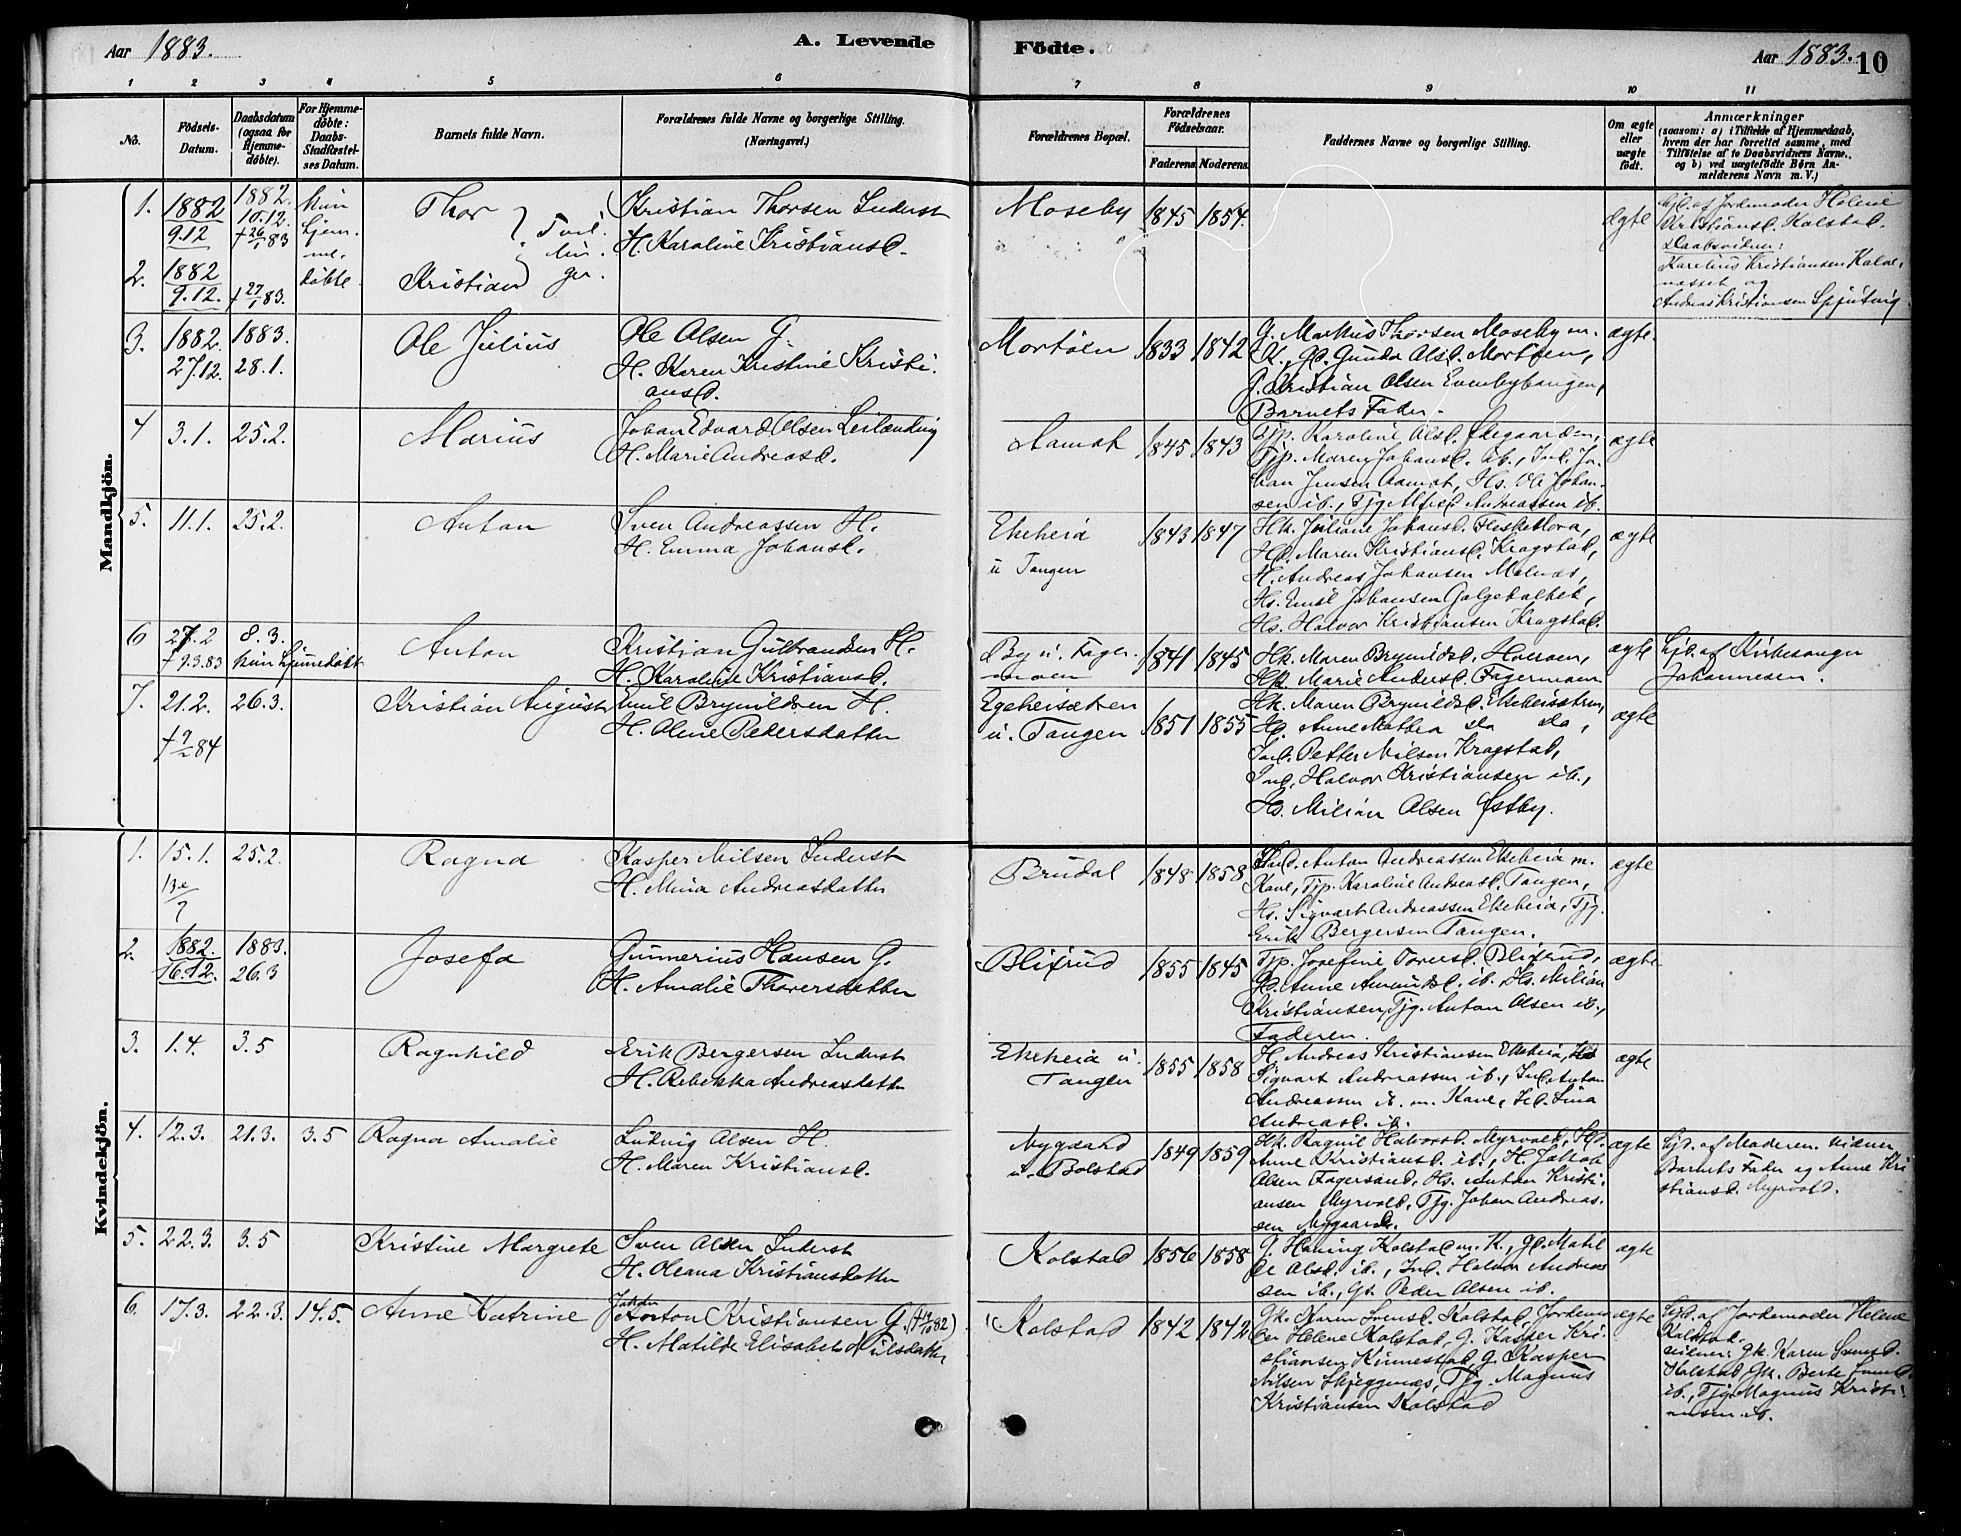 Aar 1883.
A. Levende
Födte.
Aar 1883. 10
1 2 3 4 5 6 7 8 9 10 11
No.
Födsels-Datum.
Daabsdatum (ogsaa for Hjemme-döbte).
For Hjemme-döbte: Daabs-Stadfæstel-ses Datum.
Barnets fulde Navn.
Forældrenes fulde Navne og borgerlige Stilling.
(Næringsvei.)
Forældrenes Bopæl.
Forældrenes Födselsaar.
Faderens. Moderens.
Faddernes Navne og borgerlige Stilling.
Om ægte eller uægte födt.
Anmærkninger
(saasom: a) i Tilfælde af Hjemmedaab,
hvem der har forrettet samme, med
Tilföielse af to Daabsvidners Navne,
og b) ved uægtefödte Börn An-
melderens Navn m. V.)
Mandkjön.
1. 1882 9.12 1882. 10.12. †26/1 83 kun hjem-me-döbte Thor Tvil-lin-ger. Kristian Thorsen Inderst
H. Karoline Kristiansd.
Moseby 1845 1854. ægte Hjd. af Jordemoder Helene
Kristiansd. Kolstad.
Daabsvidner:
Karelius Kristiansen
og
Andreas Kristiansen
2. 1882 9.12. †27/1 83. Kristian
3. 1882. 27.12. 1883. 28.1. Ole Julius Ole Olsen G.
H. Karen Kristine Kristi-
ansd.
Mortöen 1833 1842 G. Markus Thorsen Moseby m.
K., Gd. Gunda Olsd. Mortöen,
G. Kristian Olsen Evenbybangen,
Barnets Fader. ægte.
4 3.1. 25.2. Marius Johan Edvard Olsen Leilænding
H. Marie Andreasd.
Aamot 1845 1843 Tjp. Karoline Olsd. Ödegaarden,
Tjp. Maren Johansd. ib., Ind. Jo-
han Jensen Aamot, Hs. Ole Johan-
sen ib., Tjg. Alfred Andreassen ib. ægte
5. 11.1. 25.2. Anton Sven Andreassen H.
H. Emma Johansd.
Ekeheia
u Tangen 1843 1847 Hk. Juliane Johansd. Fleskeklora,
Hd. Maren Kristiansd. Kragstad,
H. Andreas Johansen Melnæs,
Hs. Emil Johansen Galgeholtet,
Hs. Halvor Kristiansen Kragstad. ægte
6 27.2 † 9.3.83 8.3. kun hjemmedöbt Anton Kristian Gulbrandsen H.
H. Karoline Kristiansd.
By u. Fager-
moen 1841 1845 Hk. Maren Brynildsd.
Hk. Marie Andersd. Fagermoen. ægte Hjd. af Kirkesanger
Johannesen.
7. 21.2. 84 26.3. Kristian August Emil Brynildsen H.
H. Oline Pedersdatter
Egeheisætren
u. Tangen 1851 1855 Hk. Maren Brynildsd. Ekeheisætren,
Hd. Anne Mathea do do,
Ind. Petter Nilsen Kragstad,
Ind. Halvor Kristiansen ib.,
Hs. Milian Olsen Östby. ægte
Kvindekjön.
1. 15.1. 25.2. Ragna Kasper Nilsen Inderst
H. Mina Andreasdatter
Brudal 1848 1858 Ind. Anton Andreassen Ekeheia m.
Kone, Tjp. Karoline Andreasd. Tangen,
Hs. Sigvart Andreassen Ekeheia, Tjg.
Erik Bergersen Tangen. ægte
2. 1882. 16.12. 1883. 26.3 Josefa Gunnerius Hansen G.
H. Amalie Thoversdatter
Blixrud 1855 1845 Tjp. Josefine Toversd. Blixrud,
Gd. Anne Amundsd. ib., Hs. Milian
Kristiansen, Tjg. Anton Olsen ib.,
Faderen. ægte
3. 1.4. 3.5 Ragnhild Erik Bergersen Inderst
H. Rebekka Andreasdatter
Ekeheia u.
Tangen 1855 1858 H. Andreas Kristiansen Ekeheia, Hs.
Sigvart Andreassen ib., Ind. Anton
Andreassen ib. m. Kone, Hd. Lina
Andreasd. ib. ægte
4. 12.3. 21.3. 3.5 Ragna Amalie Ludvig Olsen H.
H. Maren Kristiansd.
Nygaard
u. Bolstad 1849 1859 Hk. Ragnil Halvorsd. Myrvold, Hd.
Anne Kristiansd. ib., H. Jakob
Olsen Fagersand, Hs. Anton Kristi-
ansen Myrvold, Tjg. Johan Andreas-
sen Nygaard. ægte Hjd. af Moderen. Vidner
Barnets Fader og Anne Kri-
stiansd. Myrvold.
5. 22.3. 3.5 Kristine Margrete Sven Olsen Inderst
H. Oleana Kristiansdatter
Kolstad 1856 1858 G. Haning Kolstad m. K., Gd. Matil-
de Olsd. ib., Ind. Halvor Andreas-
sen ib., Gs. Peder Olsen ib. ægte
6. 17.3. 22.3. 14.5. Anne Katrine Anton Kristiansen G. († 82)
H. Matilde Elisabeth Nilsdatter
Kolstad 1842 1842 Gk. Karen Svensd. Kolstad, Jordemo-
der Helene Kolstad, G. Kasper Kri-
stiansen Kinnestad, G. Kasper
Nilsen Skjeggenæs, Tjg. Magnus
Kristiansen Kolstad ægte Hjd. af Jordemoder Helene
Kolstad.
Vidner: Gk. Karen Svensd.
Kolstad, Gk. Berte
ib., Tjg. Magnus Kristi-
ansen ib.